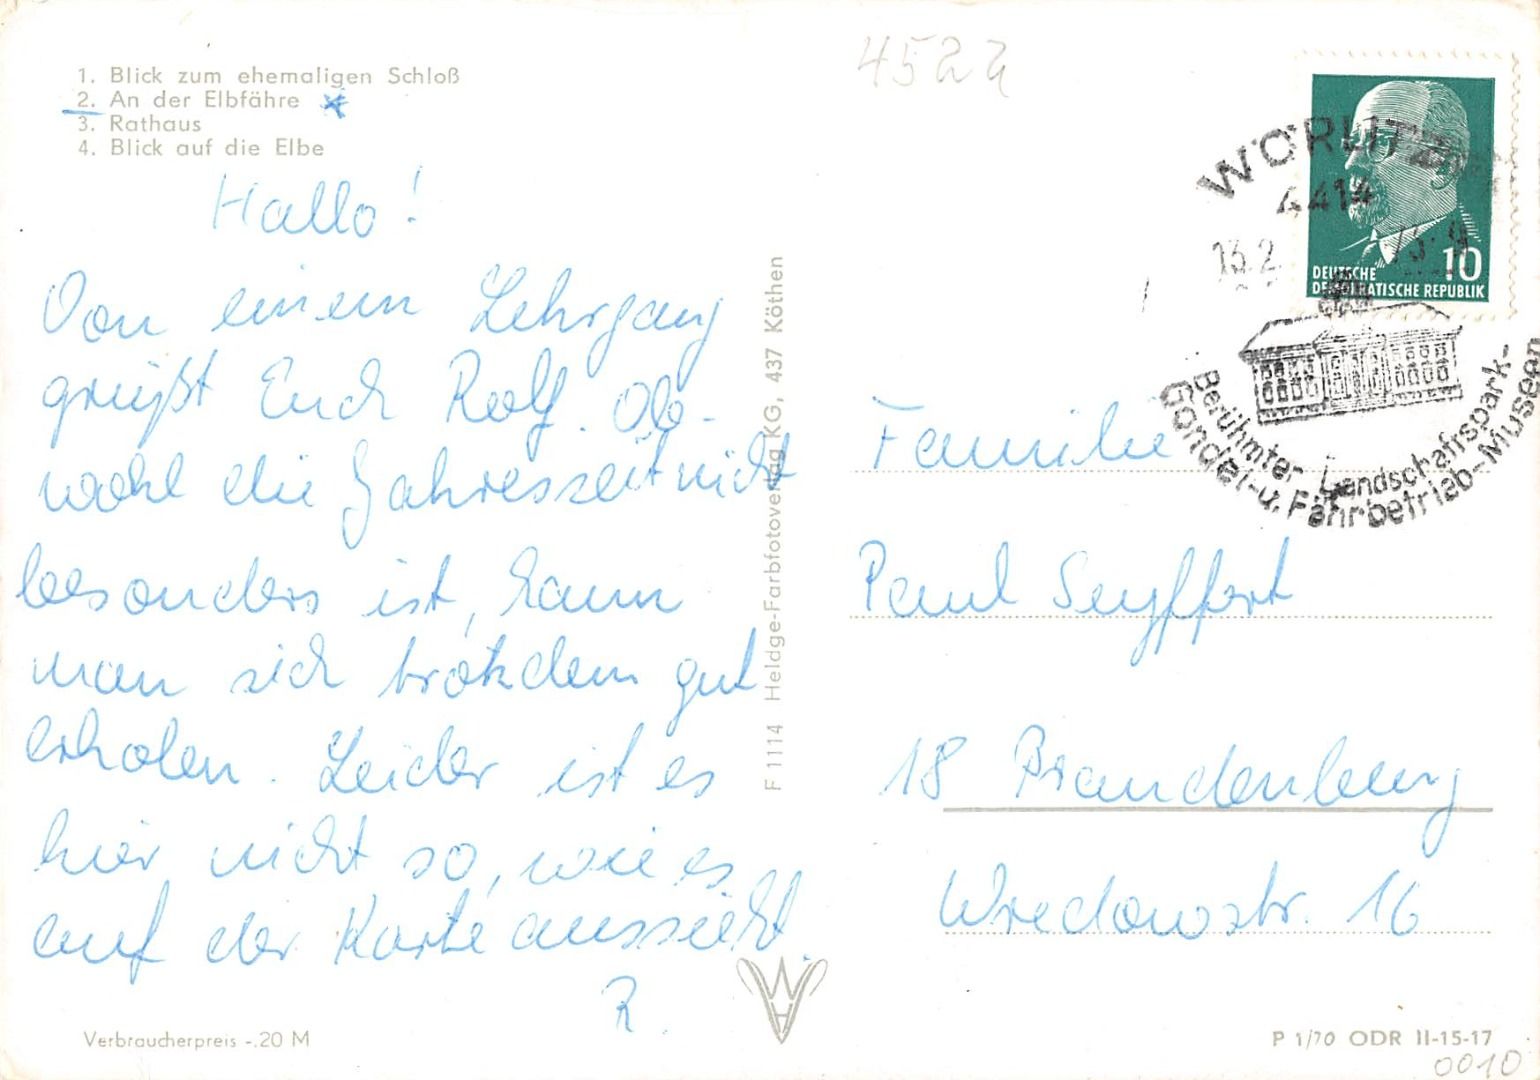 1. Blick zum ehemaligen Schloß
2. An der Elbfähre
3. Rathaus
4. Blick auf die Elbe
Hallo!
Von einem Lehrgang
grüßt Euch Rolf. Ob-
wohl die Jahreszeit nicht
besonders ist, kann
man sich trotzdem gut
erholen. Leider ist es
hier nicht so, wie es
auf der Karte aussieht.
R.
Verbraucherpreis -.20 M
F 1114 Heldge-Farbfotoverlag KG, 437 Köthen
4522
WÖRLITZ
4414
13.2
DEUTSCHE
DEMOKRATISCHE REPUBLIK
10
Berühmter Landschaftspark-
Gondel-u. Fährbetrieb-Museen
Familie
Paul Seyffert
18 Brandenburg
Wredowstr. 16
P 1/70 ODR II-15-17
0010